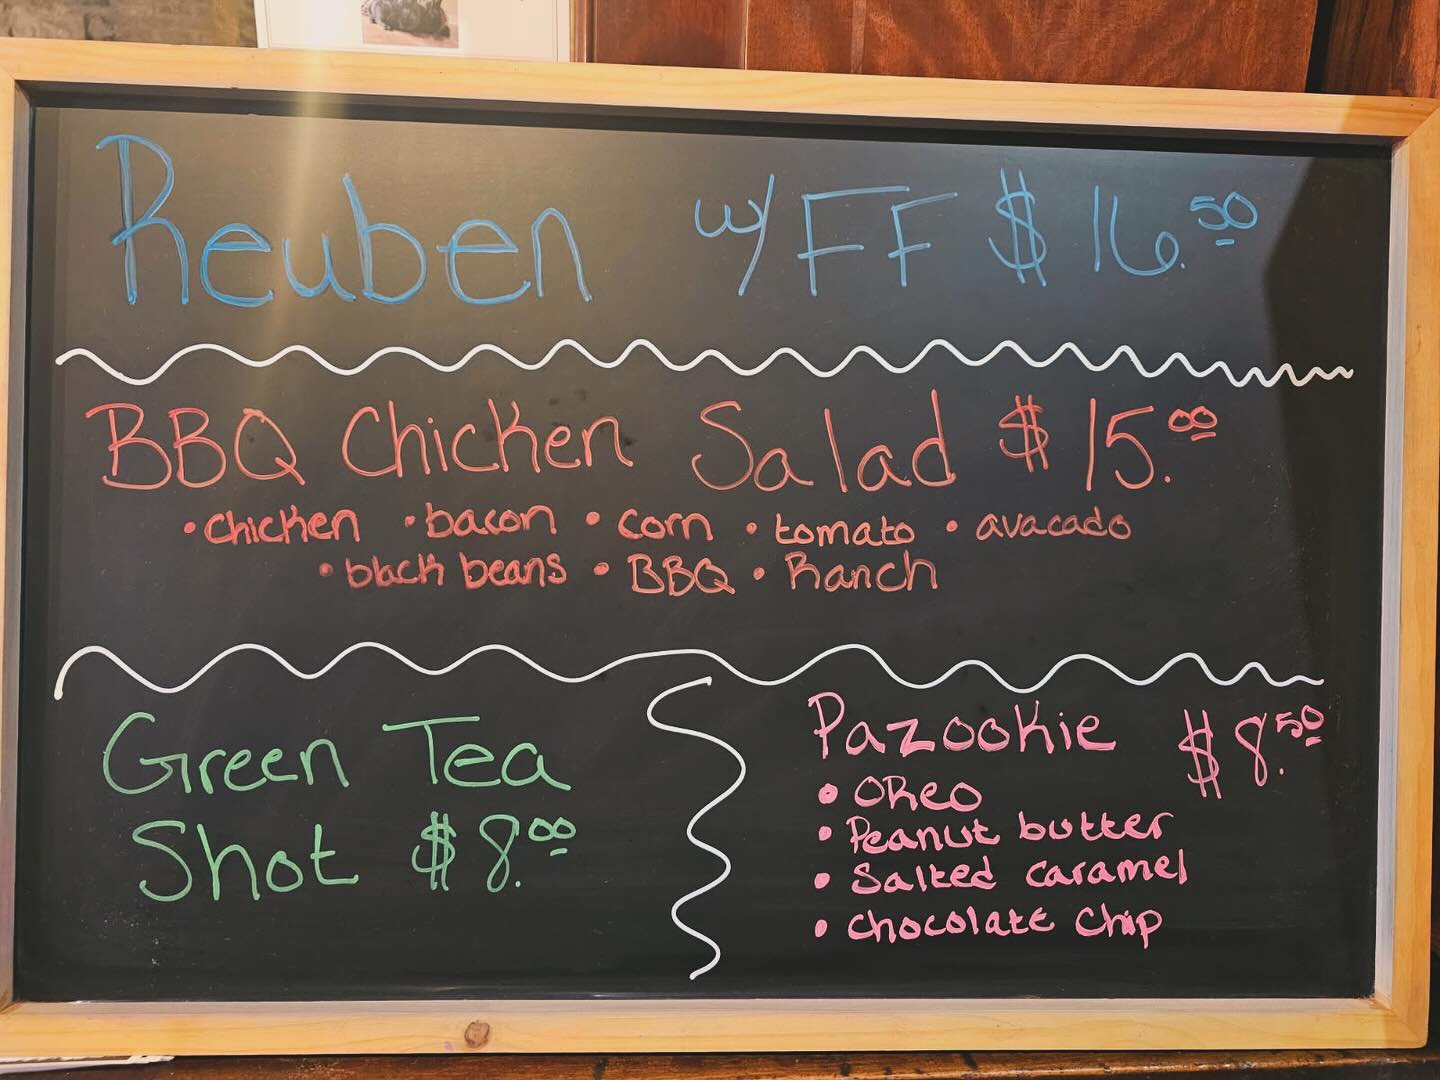 Reuben w/ FF $16.50
BBQ Chicken Salad $15.00
• chicken • bacon • corn • tomato • avacado
• black beans • BBQ • Ranch
Green Tea
Shot $8.00
Pazookie $8.50
• OReo
• Peanut butter
• Salted caramel
• chocolate chip